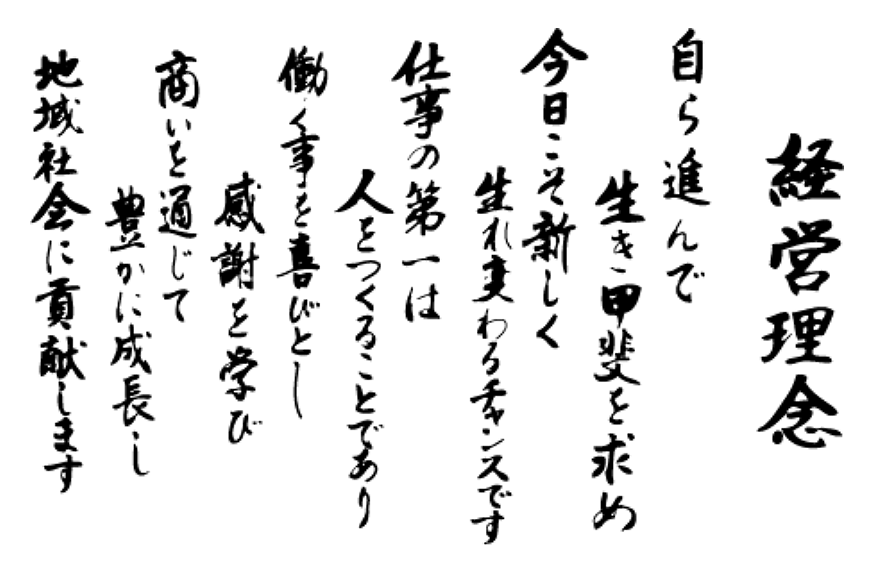 経営理念
自ら進んで
生き甲斐を求め
今日こそ新しく
生れ変わるチャンスです
仕事の第一は
人をつくることであり
働く事を喜びとし
感謝を学び
商いを通じて
豊かに成長し
地域社会に貢献します